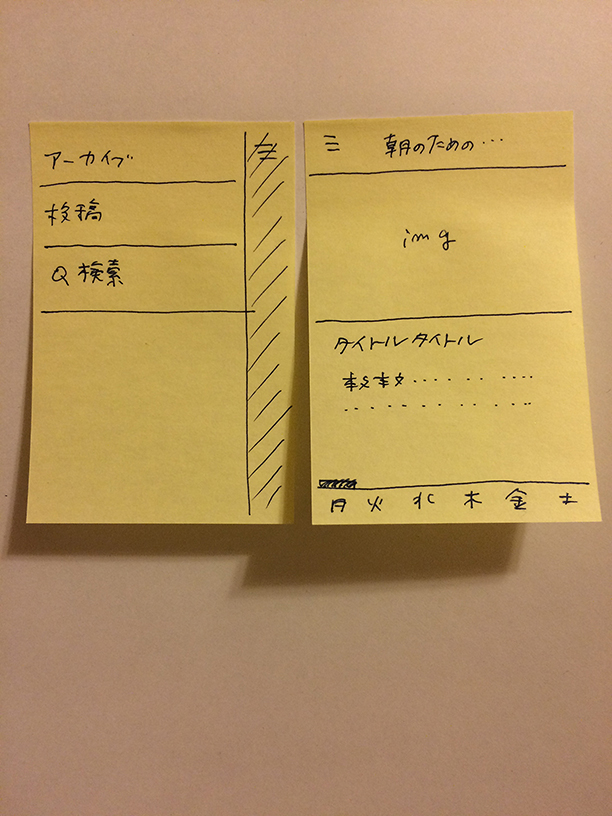 アーカイブ
投稿
検索
朝のための…
img
タイトルタイトル
本文本文‥‥‥‥
月 火 水 木 金 土